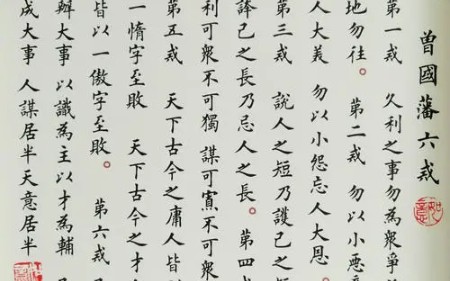 曾國藩六戒
第一戒 久利之事勿為眾爭
地勿往。 第二戒 勿以小惡
人大美 勿以小怨忘人大恩。
第三戒 說人之短乃護己之
誇己之長乃忌人之長。 第四
利可眾不可獨 謀可寡不可眾
第五戒 天下古今之庸人皆
一惰字至敗 天下古今之才
皆以一傲字至敗。 第六戒
辦大事 以識為主以才為輔
成大事 人謀居半天意居半